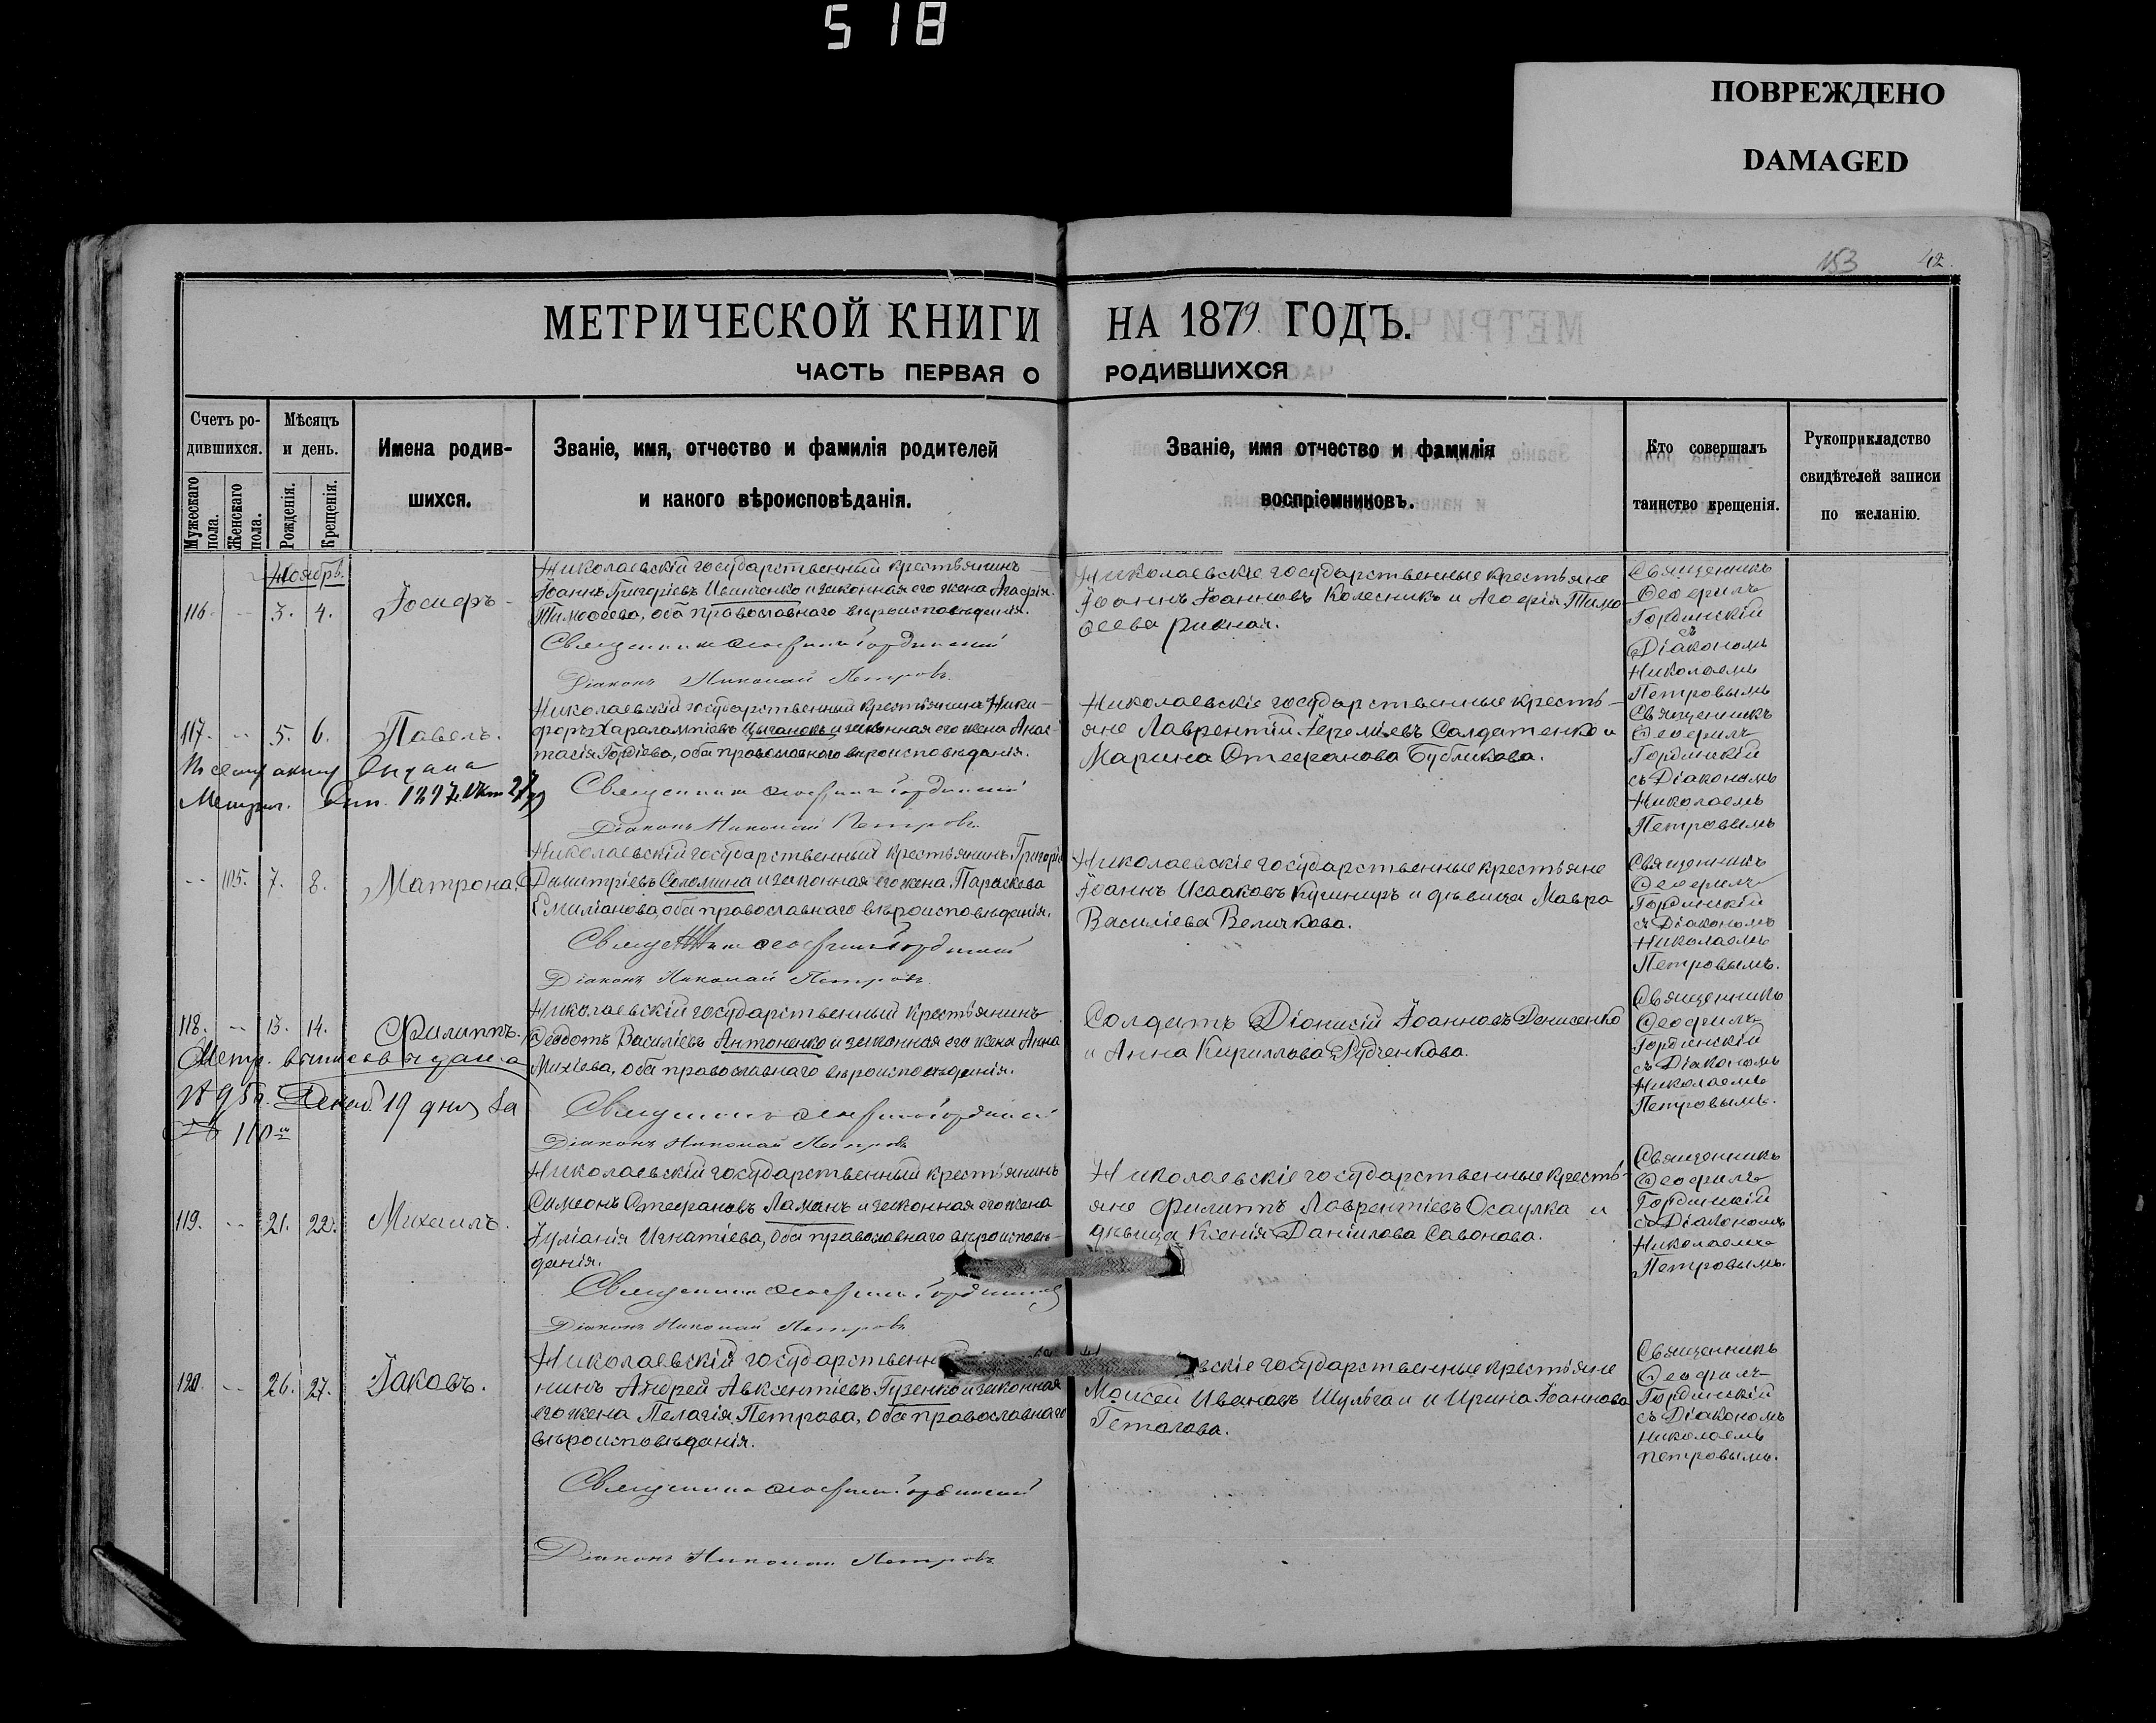 518
ПОВРЕЖДЕНО
DAMAGED
153 42.
МЕТРИЧЕСКОЙ КНИГИ НА 1879 ГОДЪ.
ЧАСТЬ ПЕРВАЯ О РОДИВШИХСЯ
Счетъ ро-
дившихся.
Мужескаго пола.
Женскаго пола.
Мѣсяцъ
и день.
Рожденія.
Крещенія.
Имена родив-
шихся.
Званіе, имя, отчество и фамилія родителей
и какого вѣроисповѣданія.
Званіе, имя отчество и фамилія
воспріемниковъ.
Кто совершалъ
таинство крещенія.
Рукоприкладство
свидѣтелей записи
по желанію.
Ноябрь.
116. -- 3. 4. Іосифъ
Николаевскій государственный крестьянинъ
Іоаннъ Григоріевъ Ивинченко и законная его жена Агафія
Тимофеева, оба православнаго вѣроисповѣданія.
Священникъ Ѳеофилъ Гординскій
Діаконъ Николай Петровъ.
Николаевскіе государственные крестьяне
Іоаннъ Іоанновъ Колесникъ и Агафія Тимо-
ѳеева
Священникъ
Ѳеофилъ
Гординскій
съ
Діакономъ
Николаемъ
Петровымъ
117. -- 5. 6. Павелъ.
Николаевскій государственный крестьянинъ Ники-
форъ Харалампіевъ Цыганокъ и законная его жена Анас-
тасія Гордіева, оба православнаго вѣроисповѣданія.
Священникъ Ѳеофилъ Гординскій
Діаконъ Николай Петровъ.
Николаевскіе государственные кресть-
яне Лаврентій Іереміевъ Солдатенко и
Марина Стефанова Бубликова.
Священникъ
Ѳеофилъ
Гординскій
съ Діакономъ
Николаемъ
Петровымъ
выдана
Метрич.
-- 105. 7. 8. Матрона.
Николаевскій государственный крестьянинъ Григорій
Димитріевъ Соломина и законная его жена Параскева
Емиліанова, оба православнаго вѣроисповѣданія.
Священникъ Ѳеофилъ Гординскій
Діаконъ Николай Петровъ
Николаевскіе государственные крестьяне
Іоаннъ Исааковъ Кушниръ и дѣвица Мавра
Василіева Величкова.
Священникъ
Ѳеофилъ
Гординскій
съ Діакономъ
Николаемъ
Петровымъ.
118. -- 13. 14. Филиппъ.
Николаевскій государственный крестьянинъ
Ѳеодотъ Василіевъ Антоненко и законная его жена Анна
Михіева, оба православнаго вѣроисповѣданія.
Священникъ Ѳеофилъ Гординскій
Діаконъ Николай Петровъ
Солдатъ Діонисій Іоанновъ Денисенко
и Анна Кириллова Рудченкова.
Священникъ
Ѳеофилъ
Гординскій
съ Діакономъ
Николаемъ
Петровымъ.
Метр. выпись выдана
19 дня за
№ 110
119. -- 21. 22. Михаилъ.
Николаевскій государственный крестьянинъ
Симеонъ Стефановъ Ламанъ и законная его жена
Іуліанія Игнатіева, оба православнаго вѣроисповѣ-
данія.
Священникъ Ѳеофилъ Гординскій
Діаконъ Николай Петровъ
Николаевскіе государственные кресть-
яне Филиппъ Лаврентіевъ Осаулка и
дѣвица Ксенія Даніилова Савонова.
Священникъ
Ѳеофилъ
Гординскій
съ Діакономъ
Николаемъ
Петровымъ.
120. -- 26. 27. Іаковъ.
Николаевскій государственн
нинъ Андрей Авксентіевъ Гузенко и законная
его жена Пелагія Петрова, оба православнаго
вѣроисповѣданія.
Священникъ Ѳеофилъ Гординскій
Діаконъ Николай Петровъ
вскіе государственные крестьяне
Моисей Ивановъ Шульга и Ирина Іоаннова
Гетагова.
Священникъ
Ѳеофилъ
Гординскій
съ Діакономъ
Николаемъ
Петровымъ.